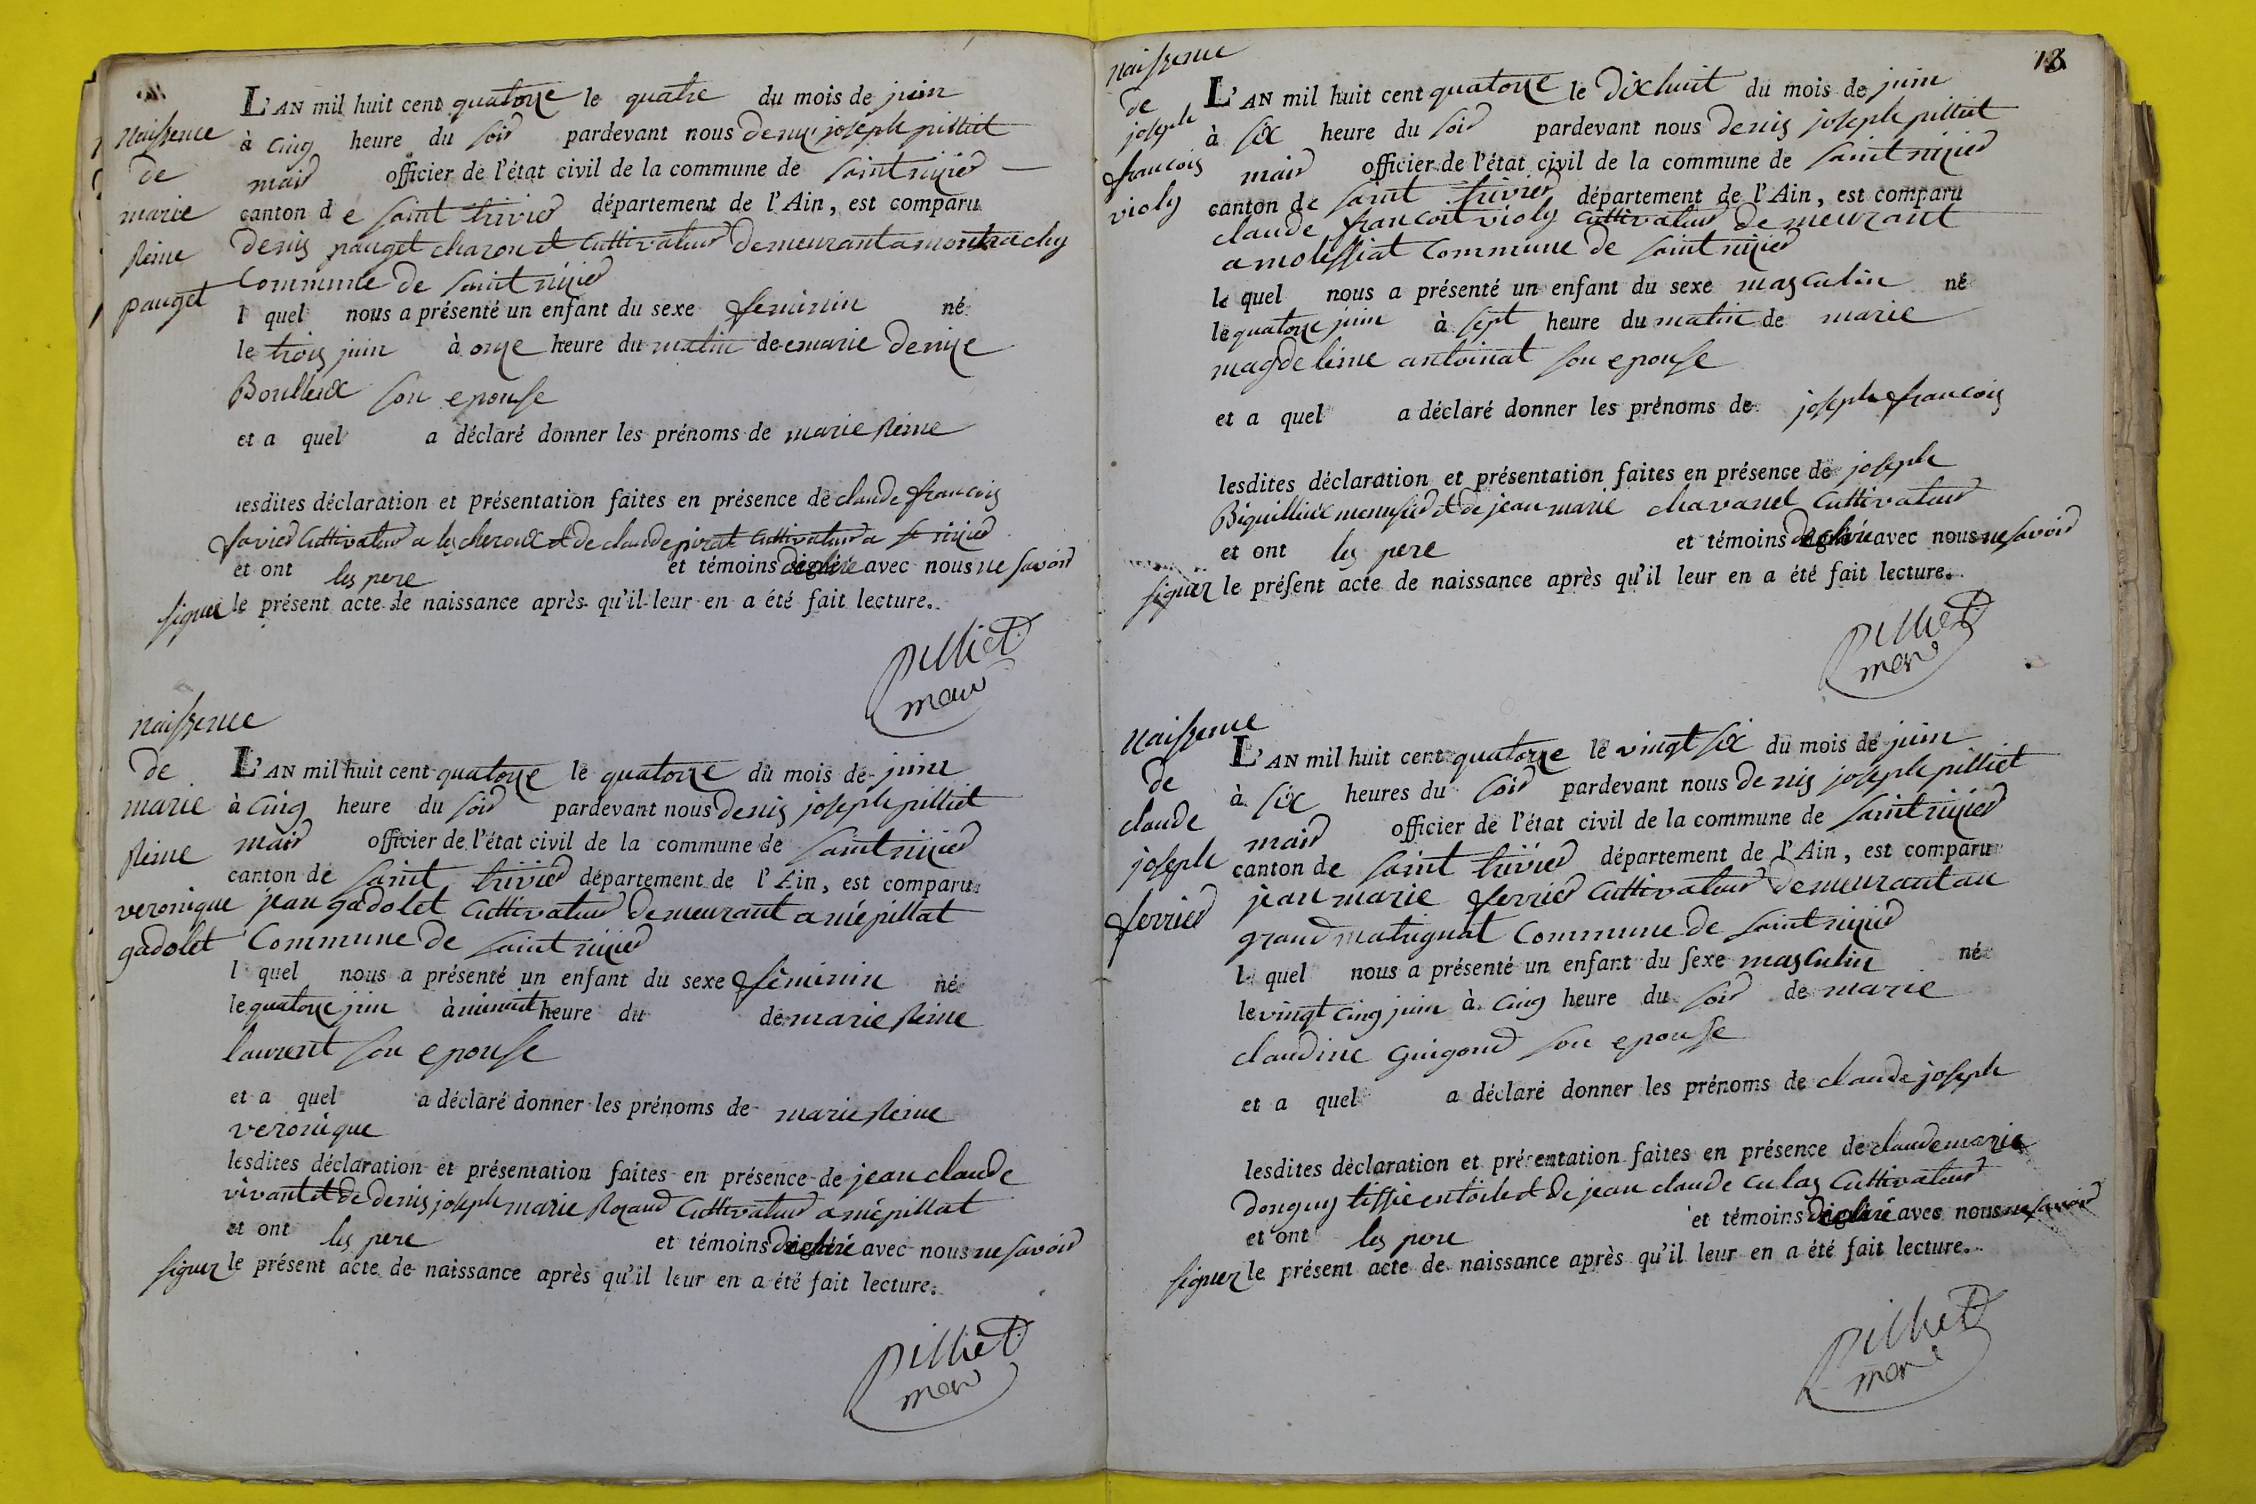 Naissence
de
marie
Reine
pauget
L'AN mil huit cent quatorze le quatre du mois de juin
à cinq heure du soir pardevant nous denis joseph pilliet
mair officier de l'état civil de la commune de saint nizier
canton de saint trivier département de l'Ain, est comparu
denis pauget charon et cultivateur demeurant a montrachy
Commune de saint nizier
l quel nous a présenté un enfant du sexe feminin né
le trois juin à onze heure du matin de marie denize
Boulleux son epouse
et a quel a déclaré donner les prénoms de marie Reine
lesdites déclaration et présentation faites en présence de claude francois
favier cultivateur a les cheroux et de claude pirat cultivateur a st nizier
et ont les pere et témoins déclaré avec nous ne savoir
signer le présent acte de naissance après qu'il leur en a été fait lecture.
Pilliet
mair
Naissence
de
marie
Reine
veronique
gadolet
L'AN mil huit cent quatorze le quatorze du mois de juin
à cinq heure du soir pardevant nous denis joseph pilliet
mair officier de l'état civil de la commune de saint nizier
canton de saint trivier département de l'Ain, est comparu
jean gadolet cultivateur demeurant a niépillat
Commune de saint nizier
l quel nous a présenté un enfant du sexe féminin né
le quatorze juin à minuit heure du de marie Reine
laurent son epouse
et a quel a déclaré donner les prénoms de marie Reine
veronique
lesdites déclaration et présentation faites en présence de jean claude
vivant et de denis joseph marie Rozand cultivateur a niépillat
et ont les pere et témoins déclaré avec nous ne savoir
signer le présent acte de naissance après qu'il leur en a été fait lecture.
Pilliet
mair
13
Naissence
de
joseph
francois
violy
L'AN mil huit cent quatorze le dix huit du mois de juin
à six heure du soir pardevant nous denis joseph pilliet
mair officier de l'état civil de la commune de saint nizier
canton de saint trivier département de l'Ain, est comparu
claude francoit violy cultivateur demeurant
a molissiat Commune de saint nizier
le quel nous a présenté un enfant du sexe masculin né
le quatorze juin à sept heure du matin de marie
magdeleine antoinat son epouse
et a quel a déclaré donner les prénoms de joseph francois
lesdites déclaration et présentation faites en présence de joseph
Biquilleux menusier et de jean marie chavanel cultivateur
et ont les pere et témoins déclaré avec nous ne savoir
signer le présent acte de naissance après qu'il leur en a été fait lecture.
Pilliet
mair
Naissence
de
claude
joseph
ferrier
L'AN mil huit cent quatorze le vingt six du mois de juin
à six heures du soir pardevant nous denis joseph pilliet
mair officier de l'état civil de la commune de saint nizier
canton de saint trivier département de l'Ain, est comparu
jean marie ferrier cultivateur demeurant au
grand matrignat Commune de saint nizier
l quel nous a présenté un enfant du sexe masculin né
le vingt cinq juin à cinq heure du soir de marie
claudine Guigond son epouse
et a quel a déclaré donner les prénoms de claude joseph
lesdites déclaration et présentation faites en présence de claude marie
donguy tissie en toile et de jean claude culas cultivateur
et ont les pere et témoins déclaré avec nous ne savoir
signer le présent acte de naissance après qu'il leur en a été fait lecture.
Pilliet
mair